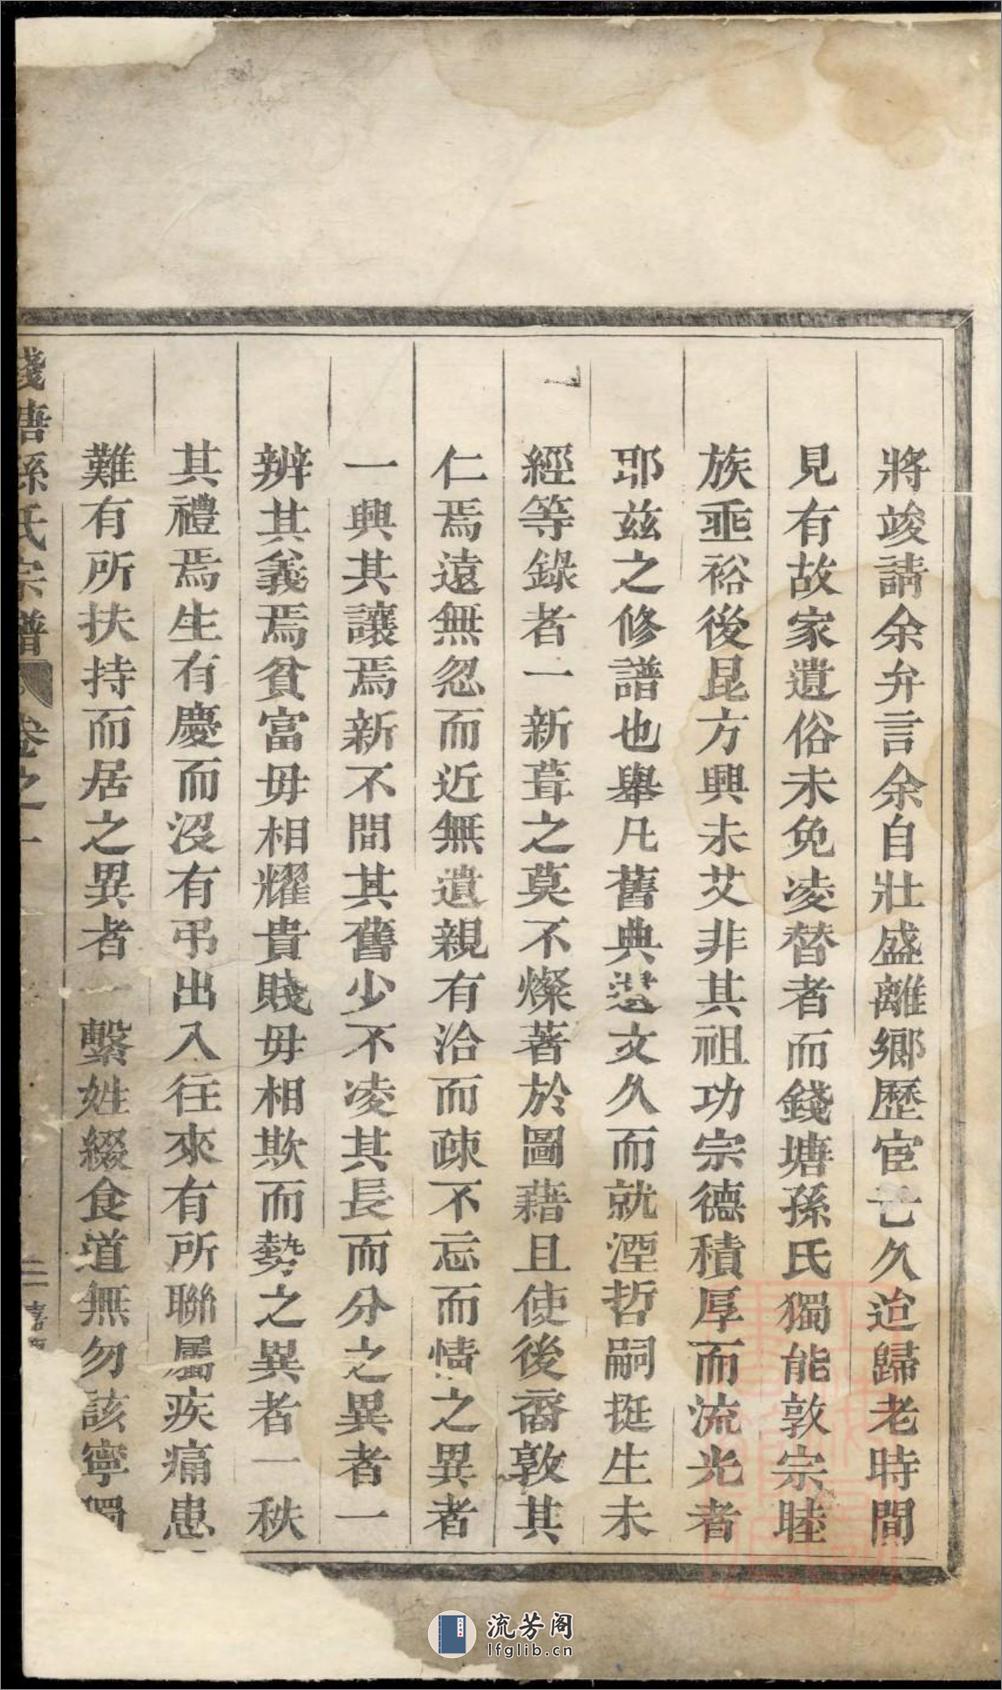 將竣請余弁言余自壯盛離鄉歷宦已久迨歸老時間
見有故家遺俗未免凌替者而錢塘孫氏獨能敦宗睦
族垂裕後昆方興未艾非其祖功宗德積厚而流光者
耶茲之修譜也舉凡舊典遺文久而就湮哲嗣挺生未
經等錄者一新葺之莫不燦著於圖藉且使後裔敦其
仁焉遠無忽而近無遺親有洽而疎不忘而情之異者
一興其讓焉新不間其舊少不凌其長而分之異者一
辨其義焉貧富毋相耀貴賤毋相欺而勢之異者一秩
其禮焉生有慶而沒有弔出入往來有所聯屬疾痛患
難有所扶持而居之異者一繫姓綴食道無勿該寧獨
錢塘孫氏宗譜 卷之一 二
流芳阁
lfglib.cn